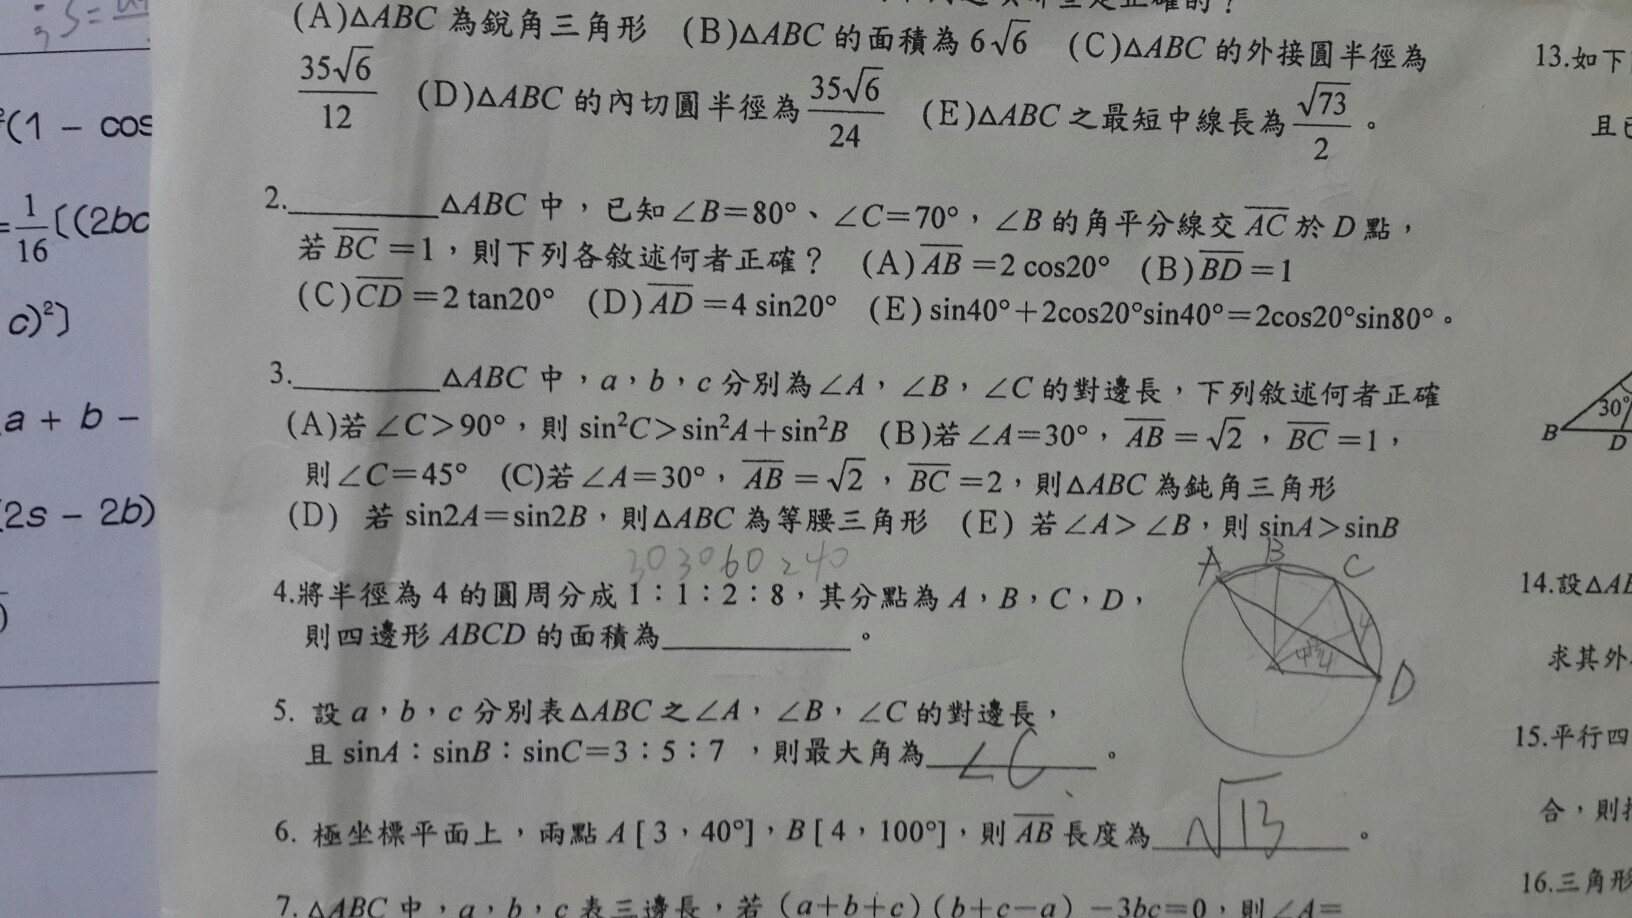 (A)△ABC 為銳角三角形 (B)△ABC 的面積為 6√6 (C)△ABC 的外接圓半徑為
35√6/12 (D)△ABC 的內切圓半徑為 35√6/24 (E)△ABC 之最短中線長為 √73/2 。
2.________△ABC 中，已知∠B=80°、∠C=70°，∠B 的角平分線交 AC 於 D 點，
若 BC =1，則下列各敘述何者正確？ (A) AB =2 cos20° (B) BD =1
(C) CD =2 tan20° (D) AD =4 sin20° (E) sin40°+2cos20°sin40°=2cos20°sin80°。
3.________△ABC 中，a，b，c 分別為∠A，∠B，∠C 的對邊長，下列敘述何者正確
(A)若∠C>90°，則 sin²C>sin²A+sin²B (B)若∠A=30°，AB =√2，BC =1，
則∠C=45° (C)若∠A=30°，AB =√2，BC =2，則△ABC 為鈍角三角形
(D) 若 sin2A=sin2B，則△ABC 為等腰三角形 (E) 若∠A>∠B，則 sinA>sinB
30 30 60 240
4.將半徑為 4 的圓周分成 1：1：2：8，其分點為 A，B，C，D，
則四邊形 ABCD 的面積為________。
A B C
D
4 4
5. 設 a，b，c 分別表△ABC 之∠A，∠B，∠C 的對邊長，
且 sinA：sinB：sinC=3：5：7 ，則最大角為 ∠C 。
6. 極坐標平面上，兩點 A [ 3，40°]，B [ 4，100°]，則 AB 長度為 √13 。
7. △ABC 中，a，b，c 表三邊長，若 (a+b+c) (b+c−a) −3bc=0，則∠A=
²(1 − cos
=1/16 [(2bc
c)²]
a + b −
2s − 2b)
13.如下
且已
30°
B D
14.設△AB
求其外
15.平行四
合，則
16.三角形